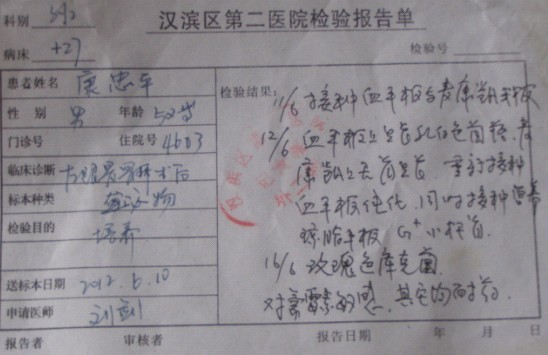 科别 外2
汉滨区第二医院检验报告单
病床 +27
检验号
患者姓名 康忠平
性 别 男 年龄 52岁
门诊号 住院号 4603
临床诊断 术后
标本种类 分泌物
检验目的 培养
送标本日期 2012.6.10
申请医师 刘剑
报告者 审核者 报告日期 年 月 日
检验结果: 11/6 接种血平板与麦康凯平板
12/6 血平板上
康凯上无菌生长 重新接种
血平板纯化,同时接种营养
琼脂平板 G+小杆菌
16/6 玫瑰色库克菌
对 素敏感,其它均耐药.